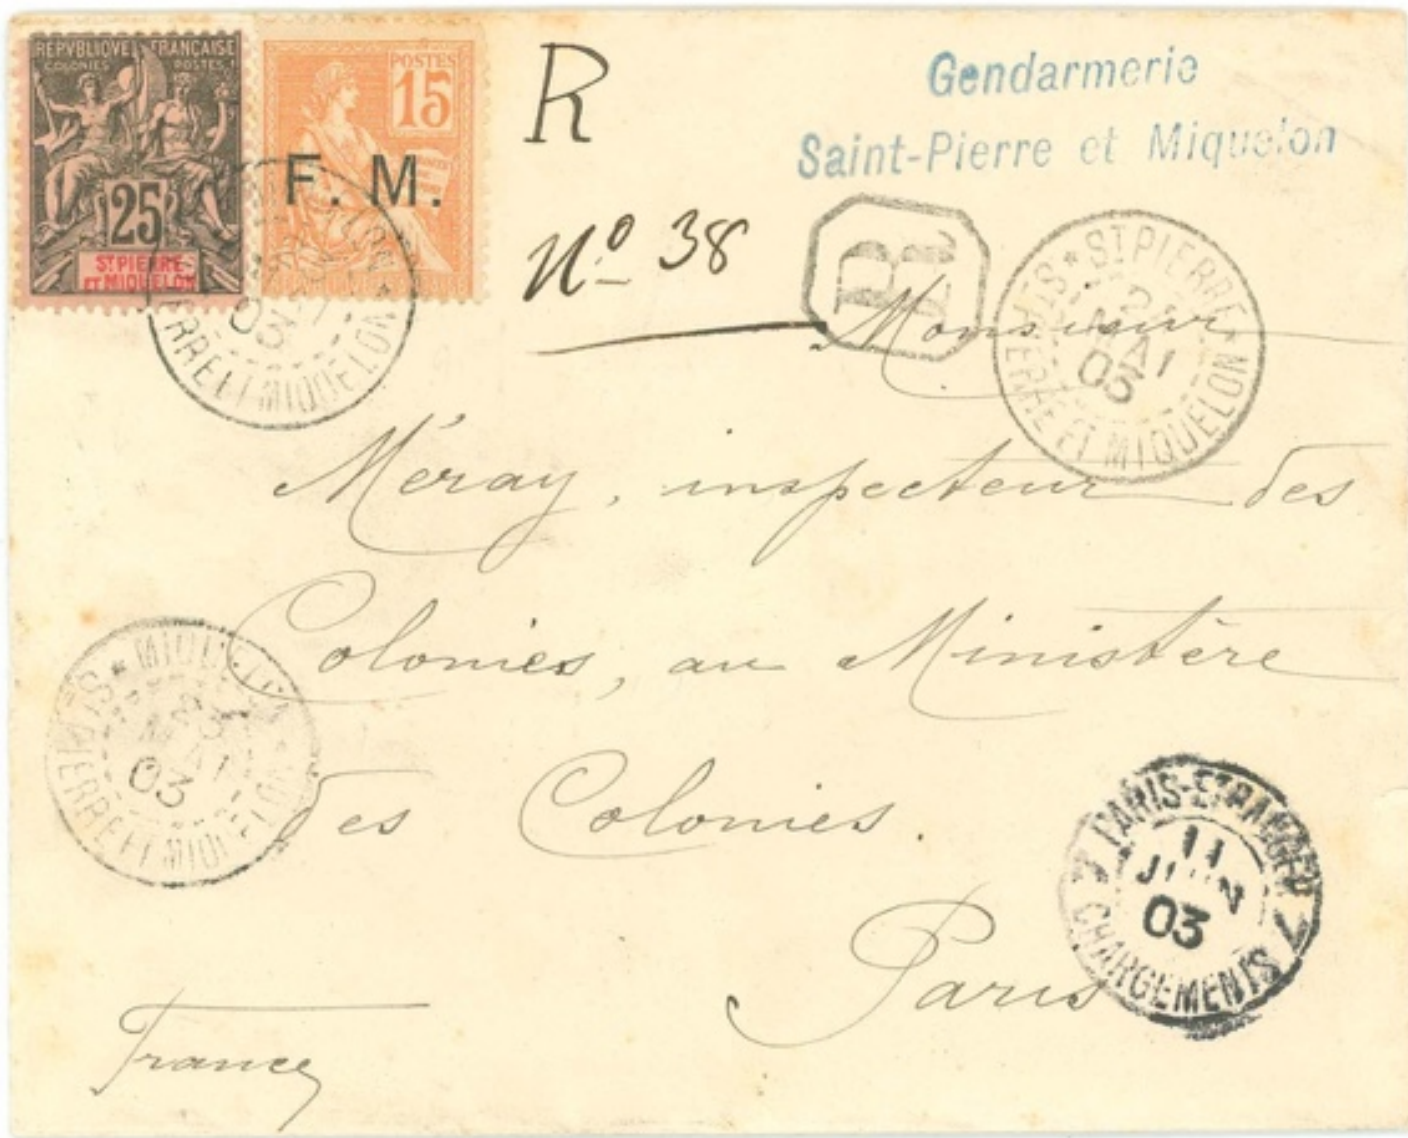 REPVBLIQVE FRANÇAISE
COLONIES POSTES
25
ST PIERRE-
ET MIQUELON
POSTES
15
F. M.
R
Nº 38
Gendarmerie
Saint-Pierre et Miquelon
R
ST PIERRE
MAI
03
ST PIERRE ET MIQUELON
03
RRE ET MIQUELON
Monsieur
Méray, inspecteur des
Colonies, au Ministère
des Colonies.
Paris
France
MIQUELON
23
MAI
03
ST PIERRE ET MIQUELON
PARIS-ETRANGER
11
JUIN
03
CHARGEMENTS